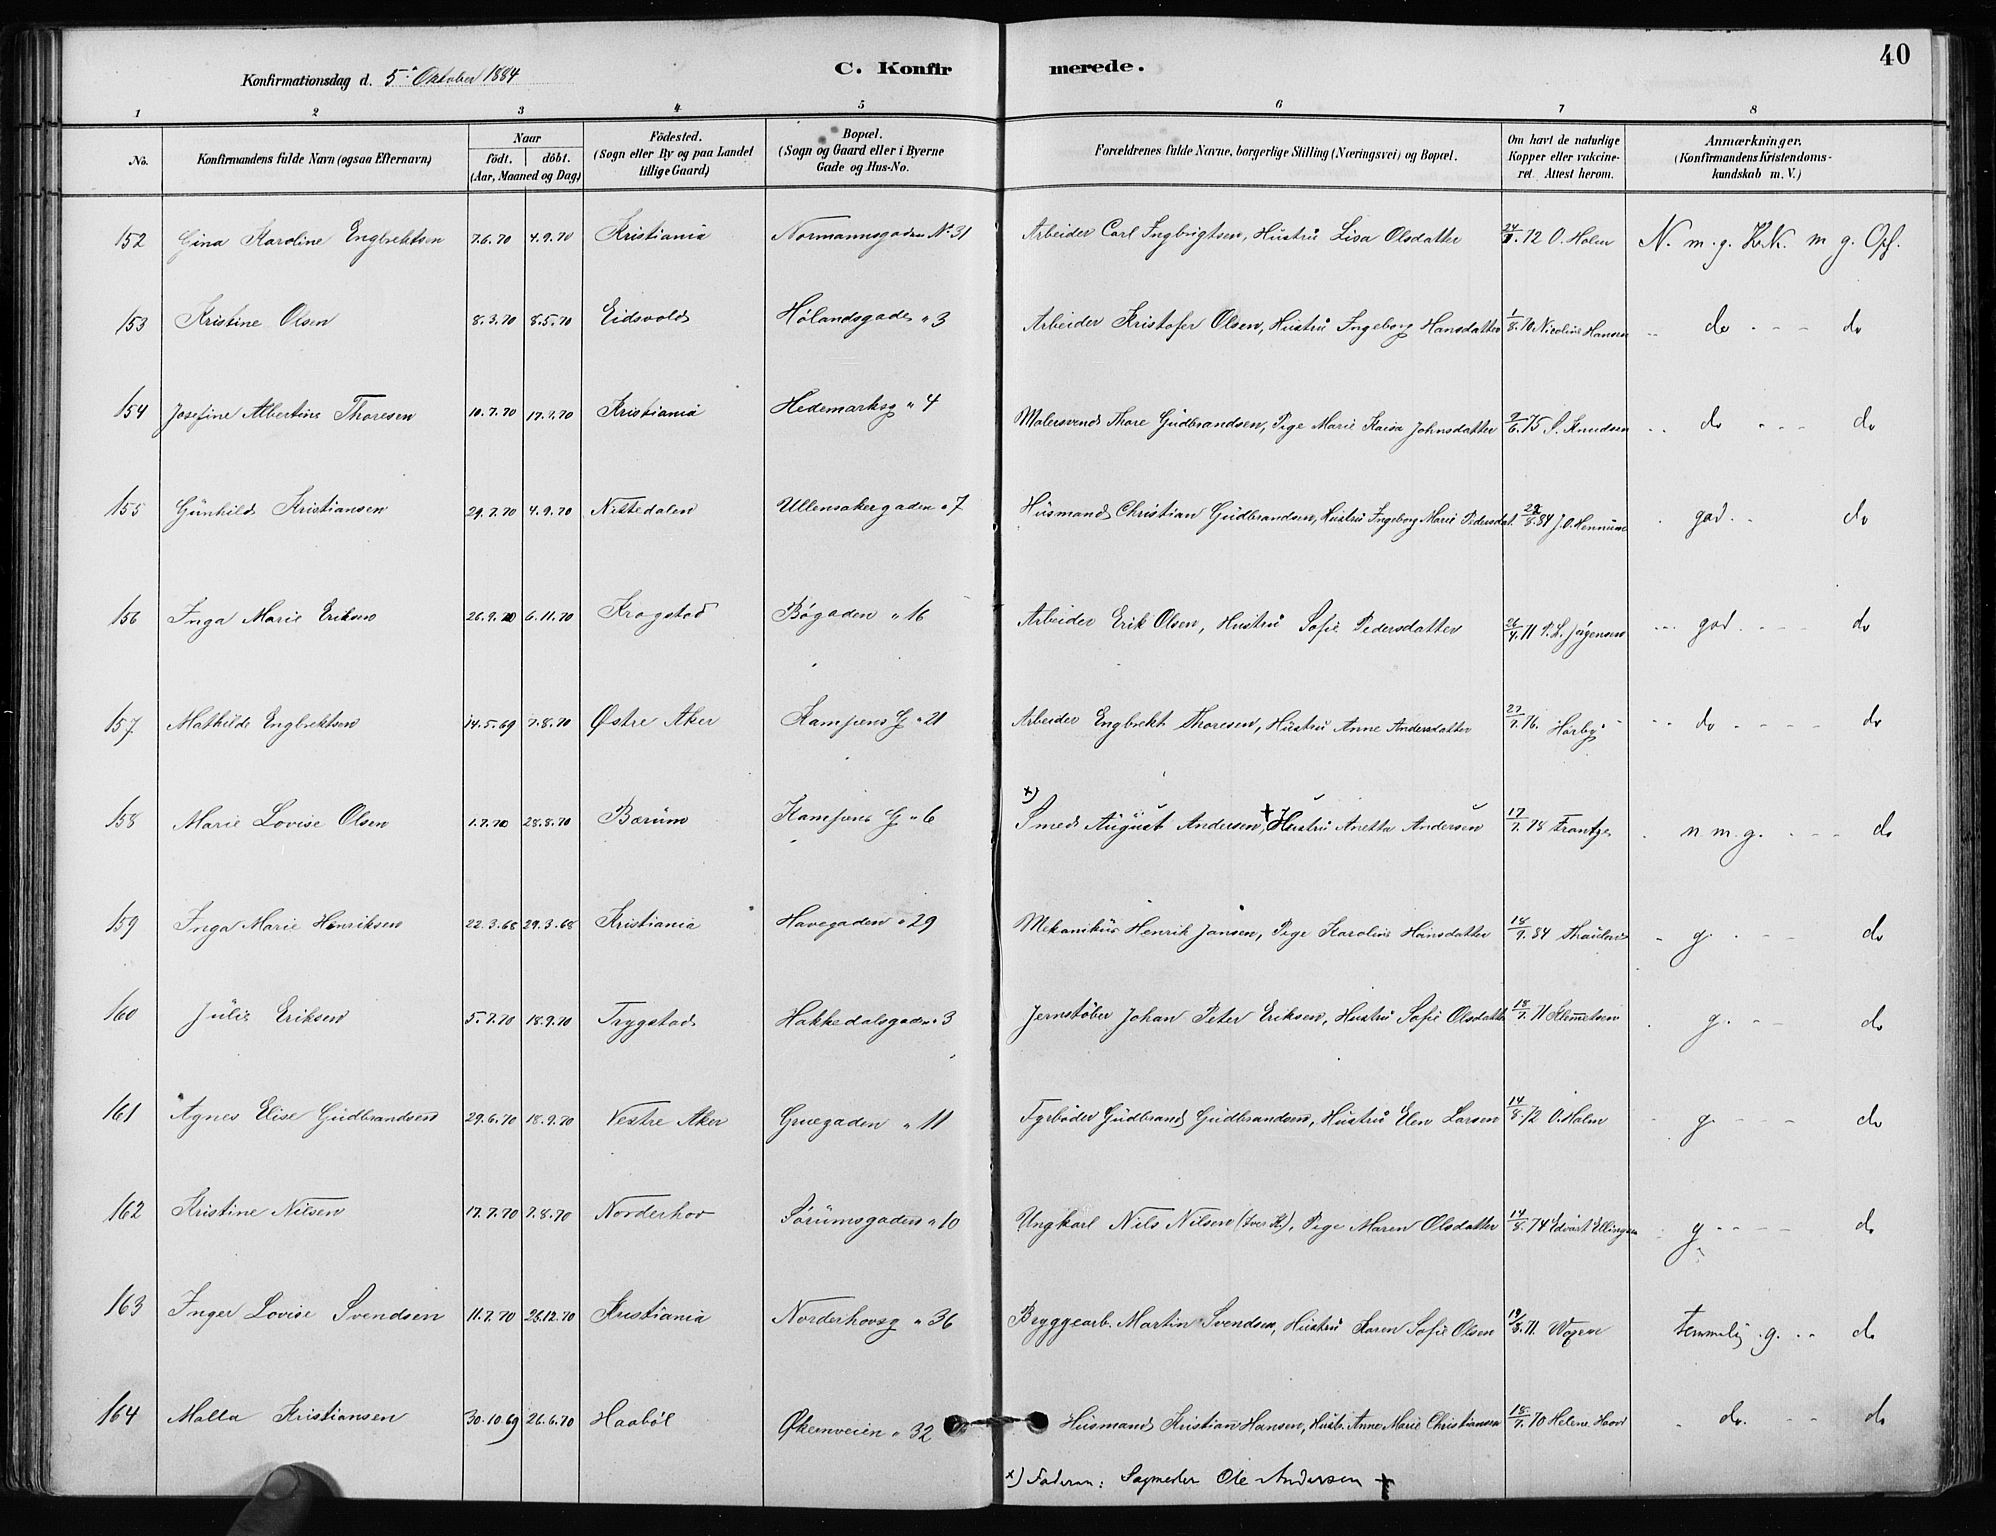 Konfirmationsdag d. 5 Oktober 1884 C. Konfirmerede. 40
1 2 3 4 5 6 7 8
No. Konfirmandens fulde Navn (ogsaa Efternavn) Naar født. døbt. (Aar, Maaned og Dag) Fødested. (Sogn eller By og paa Landet tillige Gaard) Bopæl. (Sogn og Gaard eller i Byerne Gade og Hus-No. Forældrenes fulde Navne, borgerlige Stilling (Næringsvei) og Bopæl. Om havt de naturlige Kopper eller vakcineret. Attest herom. Anmærkninger. (Konfirmandens Kristendomskundskab m. V.)
152 Gina Karoline Engbrektsen 7.6.70 4.9.70 Kristiania Normannsgaden No. 31 Arbeider Carl Ingbrigtsen, Hustru Lisa Olsdatter 72 O. Holm N. m. g. Kr.K. m g. Opf.
153 Kristine Olsen 8.3.70 8.5.70 Eidsvold Hølandsgade " 3 Arbeider Kristofer Olsen, Hustru Ingeborg Hansdatter 1/8.70 Nicoline Hansen do do
154 Josefine Albertine Thoresen 10.7.70 17.7.70 Kristiania Hedemarksg " 4 Malersvend Thore Gudbrandsen, Pige Marie Kaisa Johnsdatter 75 S. Knudsen do do
155 Gunhild Kristiansen 29.7.70 4.9.70 Nittedalen Ullensakergaden " 7 Husmand Christian Gudbrandsen, Hustru Ingeborg Marie Pedersdat. 84 J. O. Hennum god do
156 Inga Marie Eriksen 26.9.70 6.11.70 Krogstad Bøgaden " 16 Arbeider Erik Olsen, Hustru Sofie Pedersdatter 26/4.71 P. L. Jørgensen god do
157 Mathilde Engbrektsen 14.5.69 7.8.70 Østre Aker Kampens G " 21 Arbeider Engbrekt Thoresen, Hustru Anne Andersdatter 27/7.76. Hørbye do do
158 Marie Lovise Olsen 1.7.70 28.8.70 Bærum Kampens G " 6 x) Smed August Andersen, + Hustru Anetta Andersen 17/7.78 Frantze n m. g. do
159 Inga Marie Henriksen 22.3.68 29.3.68 Kristiania Havegaden " 29 Mekanikus Henrik Jansen, Pige Karoline Hansdatter 18/9.84 Thaulow g. do
160 Julie Eriksen 5.7.70 18.9.70 Trygstad Hakkedalsgaden " 3 Jernstøber Johan Peter Eriksen, Hustru Sofie Olsdatter 18/7.71 Klemetsen g. do
161 Agnes Elise Gudbrandsen 29.6.70 18.9.70 Vestre Aker Gruegaden " 11 Fyrbøder Gudbrand Gudbrandsen, Hustru Elen Larsen 14/8.72 O. Holm g. do
162 Kristine Nilsen 17.7.70 7.8.70 Norderhov Sørumsgaden " 10 Ungkarl Nils Nilsen, Pige Maren Olsdatter 14/8.74 Edvart Ellingsen g do
163 Inger Lovise Svendsen 11.7.70 26.12.70 Kristiania Norderhovsg " 36 Bryggearb. Martin Svendsen, Hustru Karen Sofie Olsen 19/8.71. Wagen temmelig g. do
164 Malla Kristiansen 30.10.69 26.6.70 Haabøl Økernveien " 32 Husmand Kristian Hansen, Hustr. Anne Marie Christiansen 18/7.70 Helene do. do
x) Faderen: Sagmester Ole Andersen +